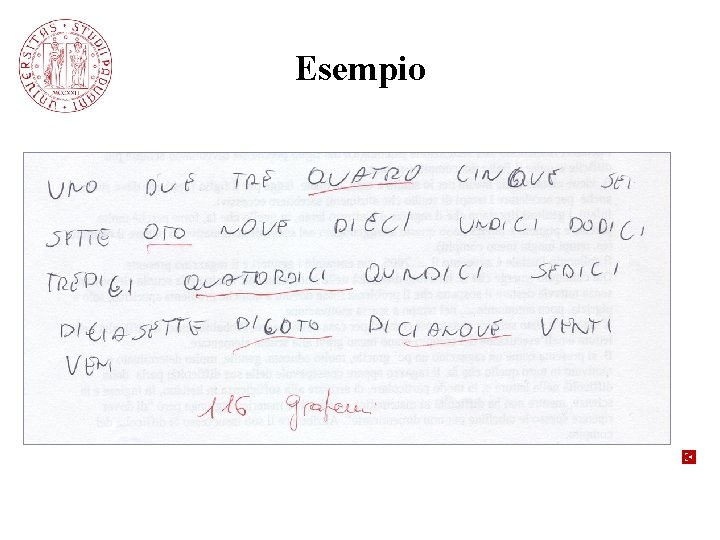 UNIVERSITAS STUDII PADUANI
MCCXXII
Esempio
UNO DUE TRE QUATRO CINQUE SEI
SETTE OTO NOVE DIECI UNDICI DODICI
TREDICI QUATORDICI QUNDICI SEDICI
DICIASETTE DICIOTO DICIANOVE VENTI
VEN
116 grafemi